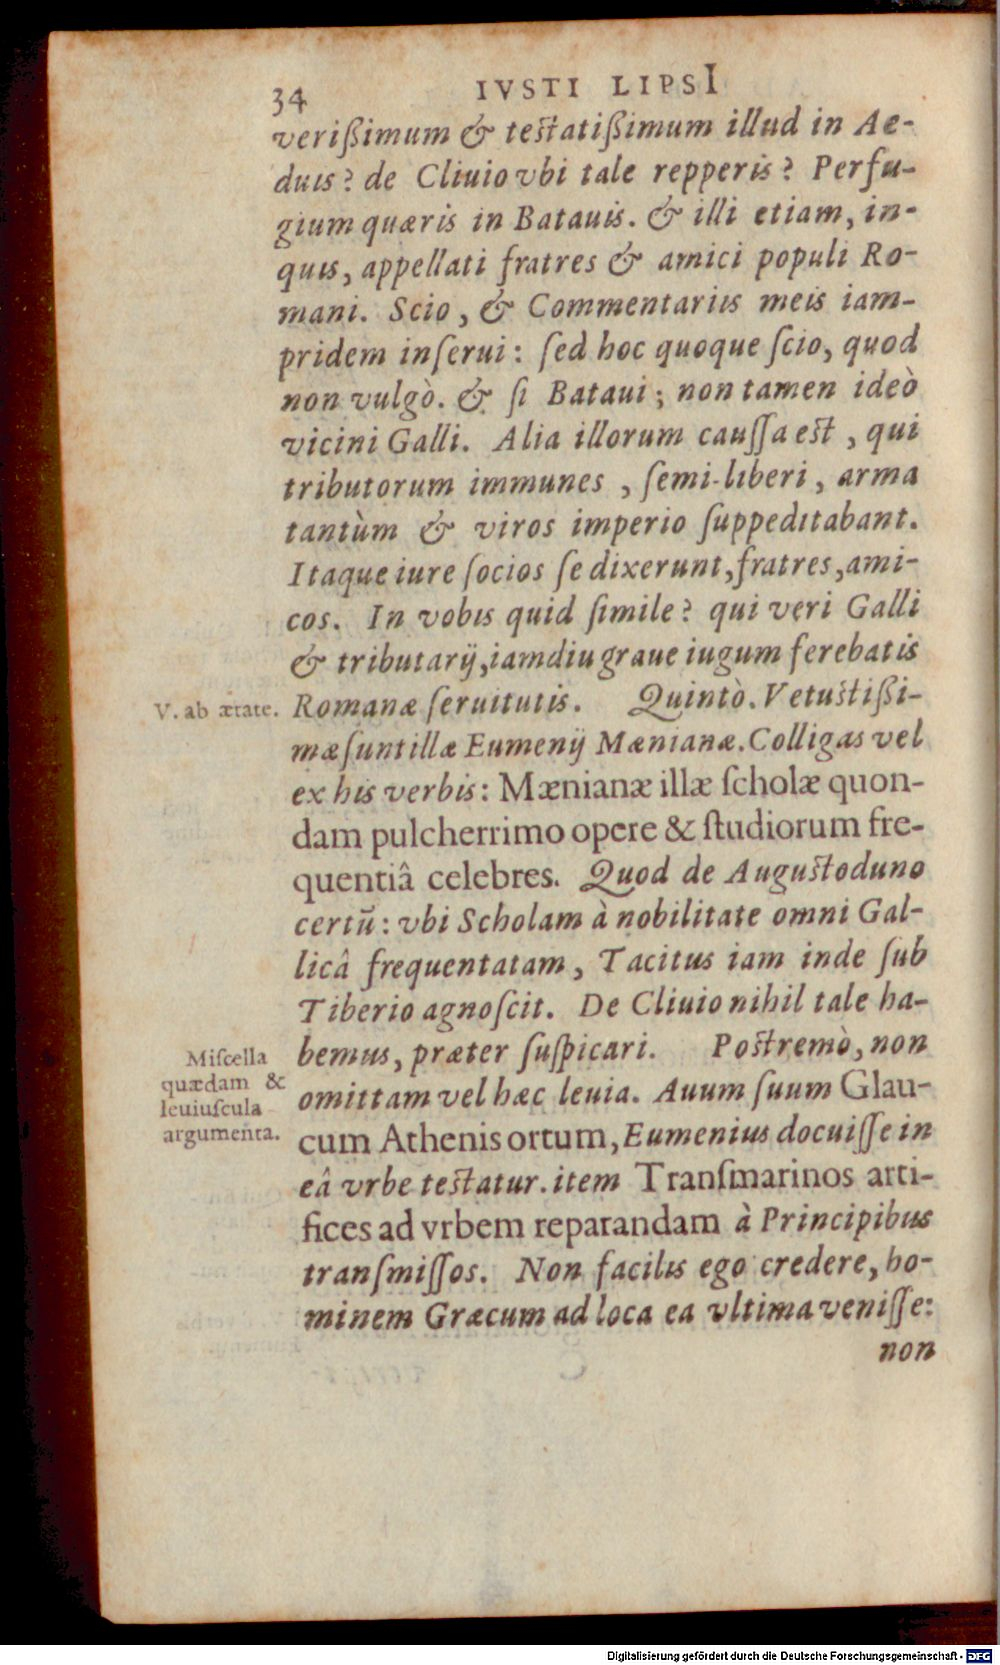 34 IVSTI LIPSI
verißimum & testatißimum illud in Ae-
duis? de Cliuio vbi tale repperis? Perfu-
gium quæris in Batauis. & illi etiam, in-
quis, appellati fratres & amici populi Ro-
mani. Scio, & Commentariis meis iam-
pridem inſerui: ſed hoc quoque ſcio, quod
non vulgò. & ſi Bataui; non tamen ideò
vicini Galli. Alia illorum cauſſa est, qui
tributorum immunes, ſemi-liberi, arma
tantùm & viros imperio ſuppeditabant.
Itaque iure ſocios ſe dixerunt, fratres, ami-
cos. In vobis quid ſimile? qui veri Galli
& tributarij, iamdiu graue iugum ferebatis
V. ab ætate. Romanæ ſeruitutis. Quintò. Vetustißi-
mæ ſunt illæ Eumenij Mænianæ. Colligas vel
ex his verbis: Mænianæ illæ ſcholæ quon-
dam pulcherrimo opere & ſtudiorum fre-
quentiâ celebres. Quod de Augustoduno
certũ: vbi Scholam à nobilitate omni Gal-
licâ frequentatam, Tacitus iam inde ſub
Tiberio agnoſcit. De Cliuio nihil tale ha-
bemus, præter ſuſpicari. Postremò, non
Miſcella
quædam &
leuiuſcula
argumenta.
omittam vel hæc leuia. Auum ſuum Glau-
cum Athenis ortum, Eumenius docuiſſe in
eâ vrbe testatur. item Tranſmarinos arti-
fices ad vrbem reparandam à Principibus
tranſmiſſos. Non facilis ego credere, ho-
minem Græcum ad loca ea vltima veniſſe:
non
Digitalisierung gefördert durch die Deutsche Forschungsgemeinschaft - DFG